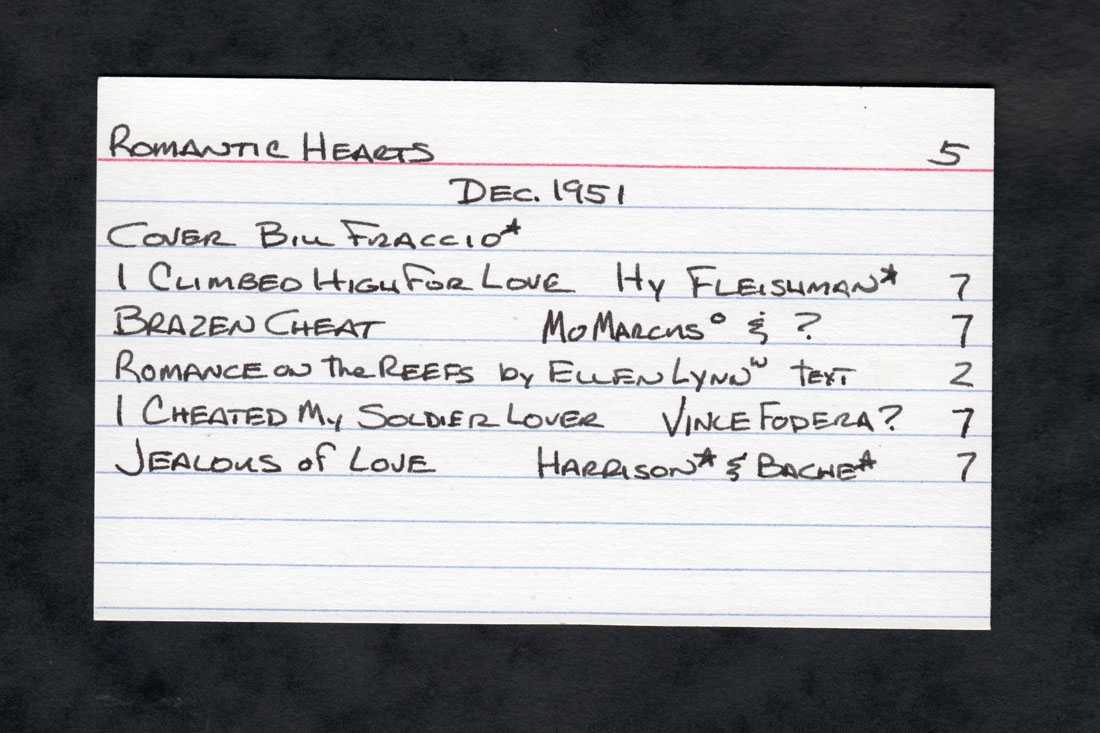 Romantic Hearts 5
Dec. 1951
Cover Bill Fraccio*
I Climbed High For Love Hy Fleishman* 7
Brazen Cheat Mo Marcus° & ? 7
Romance on the Reefs by Ellen Lynnʷ text 2
I Cheated My Soldier Lover Vince Fodera? 7
Jealous of Love Harrison* & Bache* 7